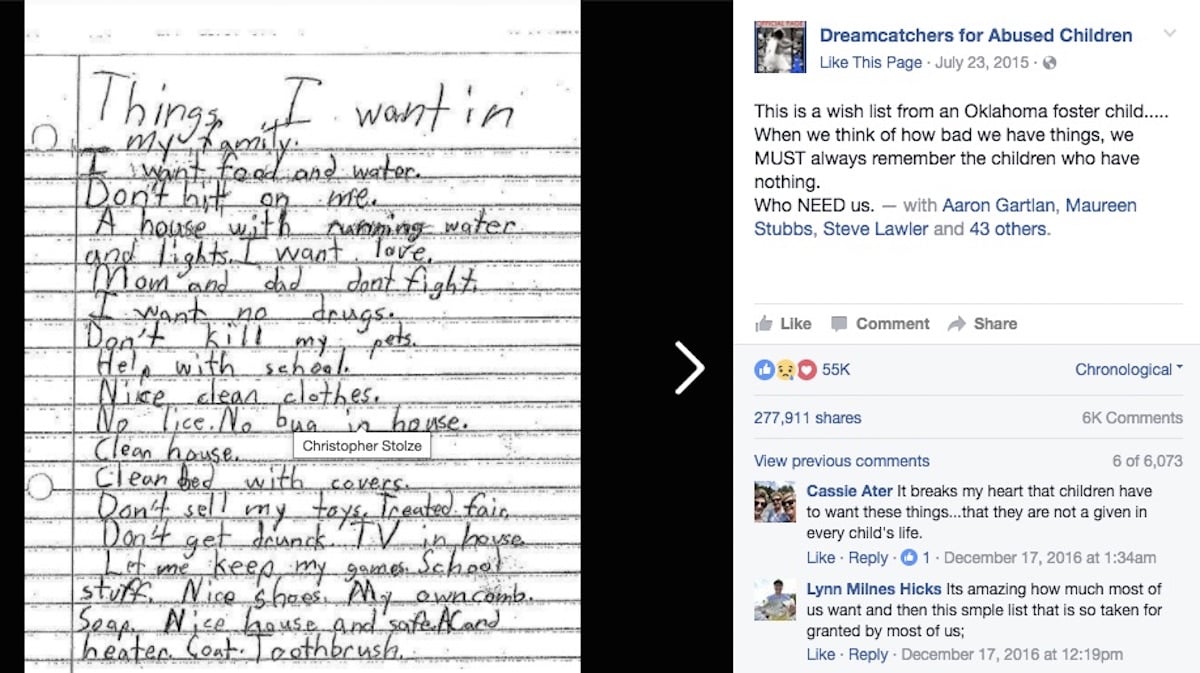 Things I want in
my family.
I want food and water.
Don't hit on me.
A house with running water
and lights. I want love.
Mom and dad dont fight.
I want no drugs.
Don't kill my pets.
Help with school.
Nice clean clothes.
No lice. No bug in house.
Clean house.
Clean bed with covers.
Don't sell my toys. Treated fair.
Don't get drunck. TV in house
Let me keep my games. School
stuff. Nice shoes. My own comb.
Soap. Nice house and safe. AC and
heater. Coat. Toothbrush.
Christopher Stolze
Dreamcatchers for Abused Children
Like This Page · July 23, 2015 ·
This is a wish list from an Oklahoma foster child.....
When we think of how bad we have things, we
MUST always remember the children who have
nothing.
Who NEED us. — with Aaron Gartlan, Maureen
Stubbs, Steve Lawler and 43 others.
Like Comment Share
55K Chronological
277,911 shares 6K Comments
View previous comments 6 of 6,073
Cassie Ater It breaks my heart that children have
to want these things...that they are not a given in
every child's life.
Like · Reply · 1 · December 17, 2016 at 1:34am
Lynn Milnes Hicks Its amazing how much most of
us want and then this smple list that is so taken for
granted by most of us;
Like · Reply · December 17, 2016 at 12:19pm